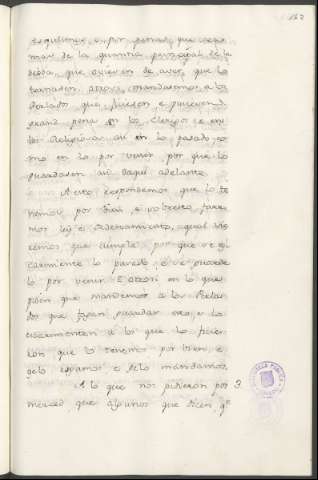 esquilmos, o por penas, que
mas de la quantia principal de la
debda, que ovieren de aver, que lo
tornasen, otrosi, mandasemos a los
Perlados que ficiesen e pusiesen
grand pena en los Clerigos e en
los Religiosos asi en lo pasado, co
mo en lo por venir, por que lo
guardasen asi daqui adelante
A esto respondemos que lo te
nemos por bien, e sobresto fare
mos ley e ordenamiento, qual vie
remos que cumple, por que se es
carmiente lo pasado, e se guarde
lo por venir. E otrosi en lo que
piden que mandemos a los Perla
dos que fagan guardar esto, e lo
escarmienten a los que lo ficie
ron que lo tenemos por bien, e
gelo rogamos e gelo mandamos.
A lo que nos pidieron por 3.
merced, que algunos que dicen q.e